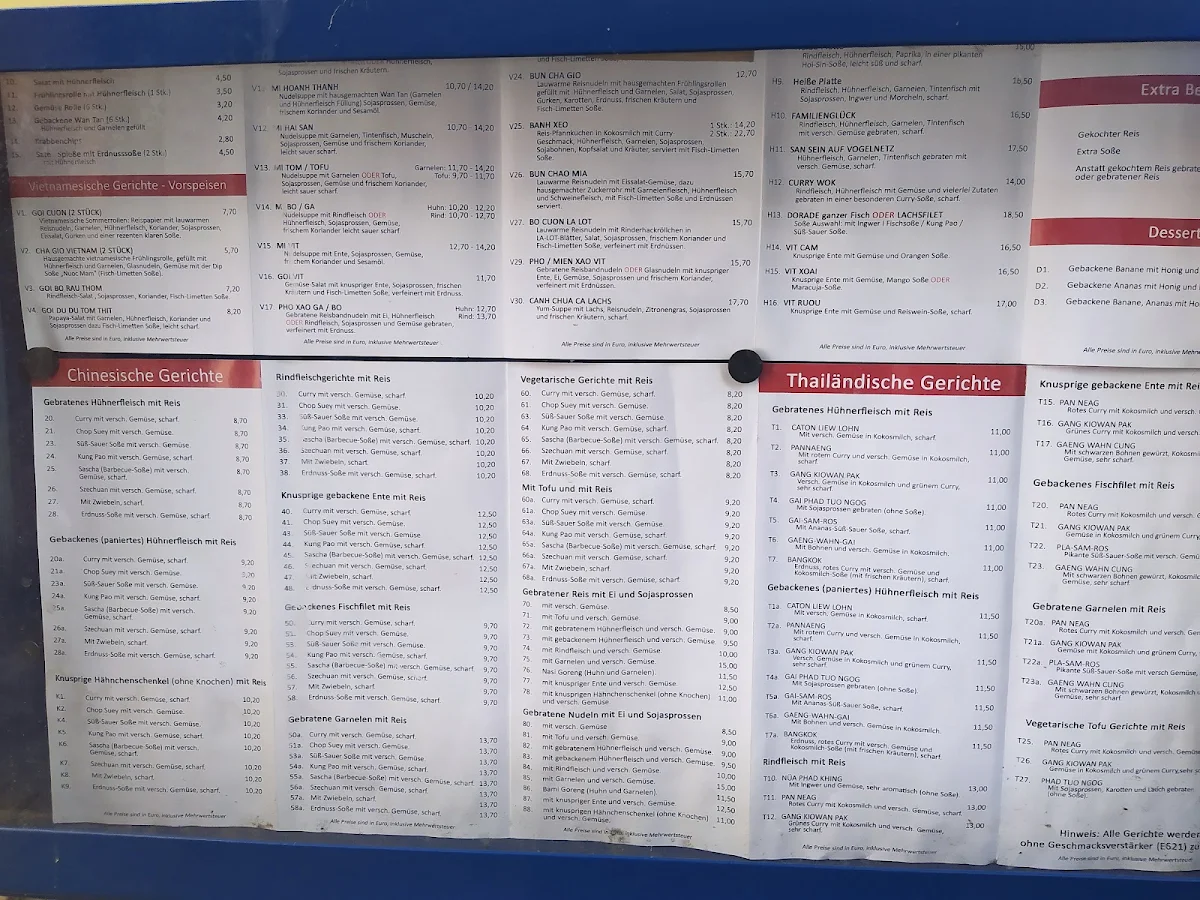 Salat mit Hühnerfleisch 4,50
Frühlingsrolle mit Hühnerfleisch (1 Stk.) 3,50
Gemüse Rolle (6 Stk.) 3,20
Gebackene Wan Tan (6 Stk.) 4,20
Hühnerfleisch und Garnelen gefüllt
Krabbenchips 2,80
mit Erdnusssoße (2 Stk.) 4,50
Vietnamesische Gerichte - Vorspeisen
V1. GOI CUON (2 STÜCK) 7,70
Vietnamesische Sommerrollen: Reispapier mit lauwarmen
Reisnudeln, Garnelen, Hühnerfleisch, Koriander, Sojasprossen,
Eisalat, Gurken und einer rezenten klaren Soße.
V2. CHA GIO VIETNAM (2 STÜCK) 5,70
Hausgemachte vietnamesische Frühlingsrolle, gefüllt mit
Hühnerfleisch und Garnelen, Glasnudeln, Gemüse mit der Dip
Soße „Nuoc Mam" (Fisch-Limetten Soße).
V3. GOI BO RAU THOM 7,20
Rindfleisch-Salat, Sojasprossen, Koriander, Fisch-Limetten Soße.
V4. GOI DU DU TOM THIT 8,20
Papaya-Salat mit Garnelen, Hühnerfleisch, Koriander und
Sojasprossen dazu Fisch-Limetten Soße, leicht scharf.
Alle Preise sind in Euro, inklusive Mehrwertsteuer
Sojasprossen und frischen Kräutern.
MI HOANH THANH 10,70 / 14,20
Nudelsuppe mit hausgemachten Wan Tan (Garnelen
und Hühnerfleisch Füllung) Sojasprossen, Gemüse,
frischem Koriander und Sesamöl.
V12. MI HAI SAN 10,70 - 14,20
Nudelsuppe mit Garnelen, Tintenfisch, Muscheln,
Sojasprossen, Gemüse, frischem Koriander,
leicht sauer scharf.
V13. MI TOM / TOFU Garnelen: 11,70 - 14,20
Nudelsuppe mit Garnelen ODER Tofu, Tofu: 9,70 - 11,70
Sojasprossen, Gemüse und frischem Koriander,
leicht sauer scharf
V14. MI BO / GA Huhn: 10,20 - 12,20
Nudelsuppe mit Rindfleisch ODER Rind: 10,70 - 12,70
Hühnerfleisch, Sojasprossen, Gemüse,
frischem Koriander leicht sauer scharf
V15. MI VIT 12,70 - 14,20
Nudelsuppe mit Ente, Sojasprossen, Gemüse,
frischem Koriander und Sesamöl.
V16. GOI VIT 11,70
Gemüse Salat mit knuspriger Ente, Sojasprossen, frischen
Kräutern und Fisch-Limetten Soße, verfeinert mit Erdnuss.
V17. PHO XAO GA / BO Huhn: 12,70
Gebratene Reisbandnudeln mit Ei, Hühnerfleisch Rind: 13,70
ODER Rindfleisch, Sojasprossen und Gemüse gebraten,
verfeinert mit Erdnuss.
Alle Preise sind in Euro, inklusive Mehrwertsteuer
und Fisch-Limetten Soße.
V24. BUN CHA GIO 12,70
Lauwarme Reisnudeln mit hausgemachten Frühlingsrollen
gefüllt mit Hühnerfleisch und Garnelen, Salat, Sojasprossen,
Gurken, Karotten, Erdnuss, frischen Kräutern und
Fisch-Limetten Soße.
V25. BANH XEO 1 Stk.: 14,20
Reis-Pfannkuchen in Kokosmilch mit Curry 2 Stk.: 22,70
Geschmack, Hühnerfleisch, Garnelen, Sojasprossen,
Sojabohnen, Kopfsalat und Kräuter, serviert mit Fisch-Limetten
Soße.
V26. BUN CHAO MIA 15,70
Lauwarme Reisnudeln mit Eissalat-Gemüse, dazu
hausgemachter Zuckerrohr mit Garnelenfleisch, Hühnerfleisch
und Schweinefleisch, mit Fisch-Limetten Soße und Erdnüssen
serviert.
V27. BO CUON LA LOT 15,70
Lauwarme Reisnudeln mit Rinderhackröllchen in
LA-LOT-Blätter, Salat, Sojasprossen, frischem Koriander und
Fisch-Limetten Soße, verfeinert mit Erdnüssen.
V29. PHO / MIEN XAO VIT 15,70
Gebratene Reisbandnudeln ODER Glasnudeln mit knuspriger
Ente, Ei, Gemüse, Sojasprossen und frischem Koriander,
verfeinert mit Erdnüssen.
V30. CANH CHUA CA LACHS 17,70
Yum-Suppe mit Lachs, Reisnudeln, Zitronengras, Sojasprossen
und frischen Kräutern, scharf.
Alle Preise sind in Euro, inklusive Mehrwertsteuer
Rindfleisch, Hühnerfleisch, Paprika, in einer pikanten 15,00
Hoi-Sin-Soße, leicht süß und scharf.
H9. Heiße Platte 16,50
Rindfleisch, Hühnerfleisch, Garnelen, Tintenfisch mit
Sojasprossen, Ingwer und Morcheln, scharf.
H10. FAMILIENGLÜCK 16,50
Rindfleisch, Hühnerfleisch, Garnelen, Tintenfisch
mit versch. Gemüse gebraten, scharf.
H11. SAN SEIN AUF VOGELNETZ 17,50
Hühnerfleisch, Garnelen, Tintenfisch gebraten mit
versch. Gemüse, scharf.
H12. CURRY WOK 14,00
Rindfleisch, Hühnerfleisch mit Gemüse und vielerlei Zutaten
gebraten in einer besonderen Curry-Soße, scharf.
H13. DORADE ganzer Fisch ODER LACHSFILET 18,50
Soße Auswahl: mit Ingwer | Fischsoße / Kung Pao /
Süß-Sauer Soße.
H14. VIT CAM 16,50
Knusprige Ente mit Gemüse und Orangen Soße.
H15. VIT XOAI 16,50
Knusprige Ente mit Gemüse, Mango Soße ODER
Maracuja-Soße.
H16. VIT RUOU 17,00
Knusprige Ente mit Gemüse und Reiswein-Soße, scharf.
Alle Preise sind in Euro, inklusive Mehrwertsteuer
Extra Be
Gekochter Reis
Extra Soße
Anstatt gekochtem Reis gebrate
oder gebratener Reis
Dessert
D1. Gebackene Banane mit Honig und
D2. Gebackene Ananas mit Honig und
D3. Gebackene Banane, Ananas mit Ho
Alle Preise sind in Euro, inklusive Mehrwerts
Chinesische Gerichte
Gebratenes Hühnerfleisch mit Reis
20. Curry mit versch. Gemüse, scharf. 8,70
21. Chop Suey mit versch. Gemüse. 8,70
23. Süß-Sauer Soße mit versch. Gemüse. 8,70
24. Kung Pao mit versch. Gemüse, scharf. 8,70
25. Sascha (Barbecue-Soße) mit versch. 8,70
Gemüse, scharf.
26. Szechuan mit versch. Gemüse, scharf. 8,70
27. Mit Zwiebeln, scharf. 8,70
28. Erdnuss-Soße mit versch. Gemüse, scharf. 8,70
Gebackenes (paniertes) Hühnerfleisch mit Reis
20a. Curry mit versch. Gemüse, scharf. 9,20
21a. Chop Suey mit versch. Gemüse. 9,20
23a. Süß-Sauer Soße mit versch. Gemüse. 9,20
24a. Kung Pao mit versch. Gemüse, scharf. 9,20
25a. Sascha (Barbecue-Soße) mit versch. 9,20
Gemüse, scharf.
26a. Szechuan mit versch. Gemüse, scharf. 9,20
27a. Mit Zwiebeln, scharf. 9,20
28a. Erdnuss-Soße mit versch. Gemüse, scharf. 9,20
Knusprige Hähnchenschenkel (ohne Knochen) mit Reis
K1. Curry mit versch. Gemüse, scharf. 10,20
K2. Chop Suey mit versch. Gemüse. 10,20
K4. Süß-Sauer Soße mit versch. Gemüse. 10,20
K5. Kung Pao mit versch. Gemüse, scharf. 10,20
K6. Sascha (Barbecue-Soße) mit versch. 10,20
Gemüse, scharf.
K7. Szechuan mit versch. Gemüse, scharf. 10,20
K8. Mit Zwiebeln, scharf. 10,20
K9. Erdnuss-Soße mit versch. Gemüse, scharf. 10,20
Alle Preise sind in Euro, inklusive Mehrwertsteuer
Rindfleischgerichte mit Reis
30. Curry mit versch. Gemüse, scharf. 10,20
31. Chop Suey mit versch. Gemüse. 10,20
33. Süß-Sauer Soße mit versch. Gemüse. 10,20
34. Kung Pao mit versch. Gemüse, scharf. 10,20
35. Sascha (Barbecue-Soße) mit versch. Gemüse, scharf. 10,20
36. Szechuan mit versch. Gemüse, scharf. 10,20
37. Mit Zwiebeln, scharf. 10,20
38. Erdnuss-Soße mit versch. Gemüse, scharf. 10,20
Knusprige gebackene Ente mit Reis
40. Curry mit versch. Gemüse, scharf. 12,50
41. Chop Suey mit versch. Gemüse. 12,50
43. Süß-Sauer Soße mit versch. Gemüse. 12,50
44. Kung Pao mit versch. Gemüse, scharf. 12,50
45. Sascha (Barbecue-Soße) mit versch. Gemüse, scharf. 12,50
46. Szechuan mit versch. Gemüse, scharf. 12,50
47. Mit Zwiebeln, scharf. 12,50
48. Erdnuss-Soße mit versch. Gemüse, scharf. 12,50
Gebackenes Fischfilet mit Reis
50. Curry mit versch. Gemüse, scharf. 9,70
51. Chop Suey mit versch. Gemüse. 9,70
53. Süß-Sauer Soße mit versch. Gemüse. 9,70
54. Kung Pao mit versch. Gemüse, scharf. 9,70
55. Sascha (Barbecue-Soße) mit versch. Gemüse, scharf. 9,70
56. Szechuan mit versch. Gemüse, scharf. 9,70
57. Mit Zwiebeln, scharf. 9,70
58. Erdnuss-Soße mit versch. Gemüse, scharf. 9,70
Gebratene Garnelen mit Reis
50a. Curry mit versch. Gemüse, scharf. 13,70
51a. Chop Suey mit versch. Gemüse. 13,70
53a. Süß-Sauer Soße mit versch. Gemüse. 13,70
54a. Kung Pao mit versch. Gemüse, scharf. 13,70
55a. Sascha (Barbecue-Soße) mit versch. Gemüse, scharf. 13,70
56a. Szechuan mit versch. Gemüse, scharf. 13,70
57a. Mit Zwiebeln, scharf. 13,70
58a. Erdnuss-Soße mit versch. Gemüse, scharf. 13,70
Alle Preise sind in Euro, inklusive Mehrwertsteuer
Vegetarische Gerichte mit Reis
60. Curry mit versch. Gemüse, scharf. 8,20
61. Chop Suey mit versch. Gemüse. 8,20
63. Süß-Sauer Soße mit versch. Gemüse. 8,20
64. Kung Pao mit versch. Gemüse, scharf. 8,20
65. Sascha (Barbecue-Soße) mit versch. Gemüse, scharf. 8,20
66. Szechuan mit versch. Gemüse, scharf. 8,20
67. Mit Zwiebeln, scharf. 8,20
68. Erdnuss-Soße mit versch. Gemüse, scharf. 8,20
Mit Tofu und mit Reis
60a. Curry mit versch. Gemüse, scharf. 9,20
61a. Chop Suey mit versch. Gemüse. 9,20
63a. Süß-Sauer Soße mit versch. Gemüse. 9,20
64a. Kung Pao mit versch. Gemüse, scharf. 9,20
65a. Sascha (Barbecue-Soße) mit versch. Gemüse, scharf. 9,20
66a. Szechuan mit versch. Gemüse, scharf. 9,20
67a. Mit Zwiebeln, scharf. 9,20
68a. Erdnuss-Soße mit versch. Gemüse, scharf. 9,20
Gebratener Reis mit Ei und Sojasprossen
70. mit versch. Gemüse. 8,50
71. mit Tofu und versch. Gemüse. 9,00
72. mit gebratenem Hühnerfleisch und versch. Gemüse. 9,00
73. mit gebackenem Hühnerfleisch und versch. Gemüse. 9,50
74. mit Rindfleisch und versch. Gemüse. 10,00
75. mit Garnelen und versch. Gemüse. 15,00
76. Nasi Goreng (Huhn und Garnelen). 11,50
77. mit knuspriger Ente und versch. Gemüse. 12,50
78. mit knusprigen Hähnchenschenkel (ohne Knochen) 11,00
und versch. Gemüse.
Gebratene Nudeln mit Ei und Sojasprossen
80. mit versch. Gemüse. 8,50
81. mit Tofu und versch. Gemüse. 9,00
82. mit gebratenem Hühnerfleisch und versch. Gemüse. 9,00
83. mit gebackenem Hühnerfleisch und versch. Gemüse. 9,50
84. mit Rindfleisch und versch. Gemüse. 10,00
85. mit Garnelen und versch. Gemüse. 15,00
86. Bami Goreng (Huhn und Garnelen). 11,50
87. mit knuspriger Ente und versch. Gemüse. 12,50
88. mit knusprigen Hähnchenschenkel (ohne Knochen) 11,00
und versch. Gemüse.
Alle Preise sind in Euro, inklusive Mehrwertsteuer
Thailändische Gerichte
Gebratenes Hühnerfleisch mit Reis
T1. CATON LIEW LOHN 11,00
Mit versch. Gemüse in Kokosmilch, scharf.
T2. PANNAENG 11,00
Mit rotem Curry und versch. Gemüse in Kokosmilch,
scharf
T3. GANG KIOWAN PAK 11,00
Versch. Gemüse in Kokosmilch und grünem Curry,
sehr scharf
T4. GAI PHAD TUO NGOG 11,00
Mit Sojasprossen gebraten (ohne Soße)
T5. GAI-SAM-ROS 11,00
Mit Ananas-Süß-Sauer Soße, scharf.
T6. GAENG-WAHN-GAI 11,00
Mit Bohnen und versch. Gemüse in Kokosmilch.
T7. BANGKOK 11,00
Erdnuss, rotes Curry mit versch. Gemüse und
Kokosmilch-Soße (mit frischen Kräutern), scharf.
Gebackenes (paniertes) Hühnerfleisch mit Reis
T1a. CATON LIEW LOHN 11,50
Mit versch. Gemüse in Kokosmilch, scharf.
T2a. PANNAENG 11,50
Mit rotem Curry und versch. Gemüse in Kokosmilch,
scharf.
T3a. GANG KIOWAN PAK 11,50
Versch. Gemüse in Kokosmilch und grünem Curry,
sehr scharf
T4a. GAI PHAD TUO NGOG 11,50
Mit Sojasprossen gebraten (ohne Soße).
T5a. GAI-SAM-ROS 11,50
Mit Ananas-Süß-Sauer Soße, scharf.
T6a. GAENG-WAHN-GAI 11,50
Mit Bohnen und versch. Gemüse in Kokosmilch.
T7a. BANGKOK 11,50
Erdnuss, rotes Curry mit versch. Gemüse und
Kokosmilch-Soße (mit frischen Kräutern), scharf
Rindfleisch mit Reis
T10. NUA PHAD KHING 13,00
Mit Ingwer und Gemüse, sehr aromatisch (ohne Soße).
T11. PAN NEAG 13,00
Rotes Curry mit Kokosmilch und versch. Gemüse, scharf.
T12. GANG KIOWAN PAK 13,00
Grünes Curry mit Kokosmilch und versch. Gemüse,
sehr scharf.
Alle Preise sind in Euro, inklusive Mehrwertsteuer
Knusprige gebackene Ente mit Rei
T15. PAN NEAG
Rotes Curry mit Kokosmilch und vers
T16. GANG KIOWAN PAK
Grünes Curry mit Kokosmilch und v
T17. GAENG WAHN CUNG
Mit schwarzen Bohnen gewürzt, Kokosmilc
Gemüse, sehr scharf.
Gebackenes Fischfilet mit Reis
T20. PAN NEAG
Rotes Curry mit Kokosmilch und versch. G
T21. GANG KIOWAN PAK
Gemüse in Kokosmilch und grünem Curry,
T22. PLA-SAM-ROS
Pikante Süß-Sauer-Soße mit versch. Gemü
T23. GAENG WAHN CUNG
Mit schwarzen Bohnen gewürzt, Kokosmilch
Gemüse, sehr scharf
Gebratene Garnelen mit Reis
T20a. PAN NEAG
Rotes Curry mit Kokosmilch und versch. G
T21a. GANG KIOWAN PAK
Gemüse mit Kokosmilch und grünem Curry,
T22a. PLA-SAM-ROS
Pikante Süß-Sauer Soße mit versch Gemüse,
T23a. GAENG WAHN CUNG
Mit schwarzen Bohnen gewürzt, Kokosmilch und
Gemüse, sehr scharf
Vegetarische Tofu Gerichte mit Reis
T25. PAN NEAG
Rotes Curry mit Kokosmilch und versch. Gemüse
T26. GANG KIOWAN PAK
Gemüse in Kokosmilch und grünem Curry, sehr scharf
T27. PHAD TUO NGOG
Mit Sojasprossen, Karotten und Lauch gebraten
(ohne Soße).
Hinweis: Alle Gerichte werden
ohne Geschmacksverstärker (E621) zu
Alle Preise sind in Euro, inklusive Mehrwertsteuer